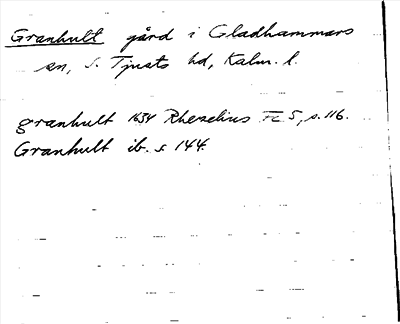 Granhult gård i Gladhammars
sn, S. Tjusts hd, Kalm. l.
granhult 1634 Rhezelius Fc 5, s. 116.
Granhult ib. s 144.